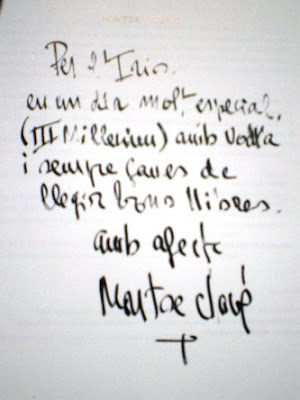 Per l'Iris.
en un dia molt especial,
(III Millenium) amb vodka
i sempre ganes de
llegir bons llibres.
amb afecte
Montse